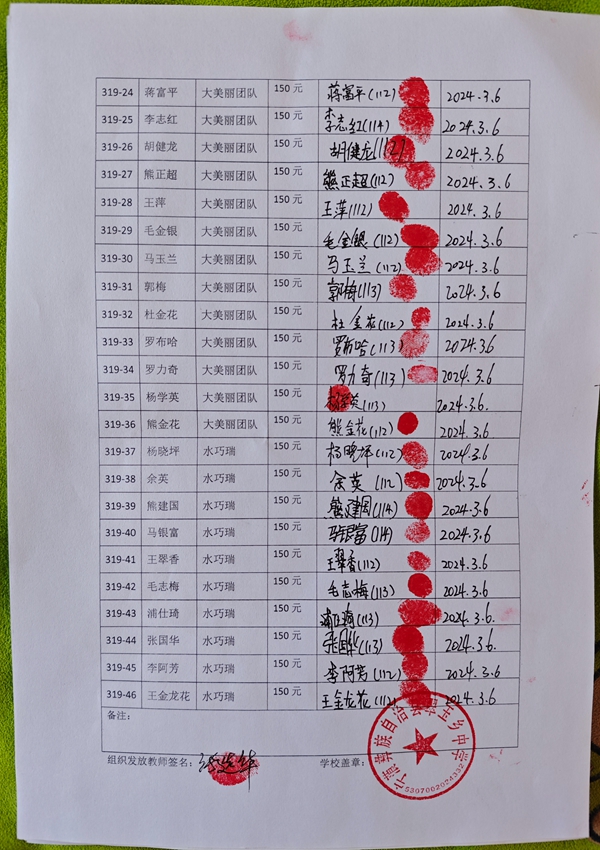 319-24 蒋富平 大美丽团队 150 元 蒋富平(112) 2024.3.6
319-25 李志红 大美丽团队 150 元 李志红(114) 2024.3.6
319-26 胡健龙 大美丽团队 150 元 胡健龙(112) 2024.3.6
319-27 熊正超 大美丽团队 150 元 熊正超(112) 2024.3.6
319-28 王萍 大美丽团队 150 元 王萍(112) 2024.3.6
319-29 毛金银 大美丽团队 150 元 毛金银(112) 2024.3.6
319-30 马玉兰 大美丽团队 150 元 马玉兰(112) 2024.3.6
319-31 郭梅 大美丽团队 150 元 郭梅(113) 2024.3.6
319-32 杜金花 大美丽团队 150 元 杜金花(112) 2024.3.6
319-33 罗布哈 大美丽团队 150 元 罗布哈(113) 2024.3.6
319-34 罗力奇 大美丽团队 150 元 罗力奇(113) 2024.3.6
319-35 杨学英 大美丽团队 150 元 杨学英(113) 2024.3.6.
319-36 熊金花 大美丽团队 150 元 熊金花(112) 2024.3.6
319-37 杨晓坪 水巧瑞 150 元 杨晓坪(112) 2024.3.6
319-38 余英 水巧瑞 150 元 余英(112) 2024.3.6
319-39 熊建国 水巧瑞 150 元 熊建国(114) 2024.3.6
319-40 马银富 水巧瑞 150 元 马银富(114) 2024.3.6
319-41 王翠香 水巧瑞 150 元 王翠香(112) 2024.3.6
319-42 毛志梅 水巧瑞 150 元 毛志梅(113) 2024.3.6
319-43 浦仕琦 水巧瑞 150 元 浦仕琦(113) 2024.3.6.
319-44 张国华 水巧瑞 150 元 张国华(113) 2024.3.6
319-45 李阿芳 水巧瑞 150 元 李阿芳(112) 2024.3.6
319-46 王金龙花 水巧瑞 150 元 王金龙花(112) 2024.3.6
备注：
组织发放教师签名： 学校盖章：
5307002024332